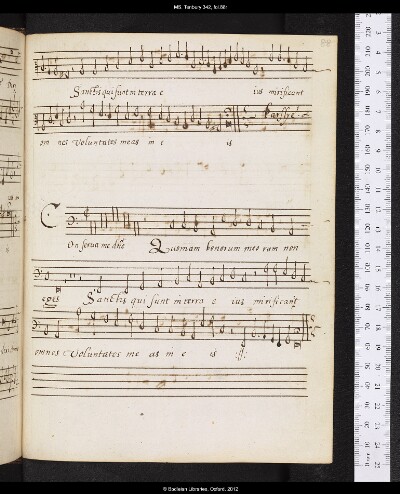 MS. Tenbury 342, fol.88r
88
Sanctis qui sunt in terra e ius mirificavit
Parshe
om nes Voluntates meas in e is
Conserva me dñe Quoniam bonorum meo rum non
eges Sanctis qui sunt in terra e ius mirificavit
omnes Voluntates me as in e is
© Bodleian Libraries, Oxford, 2012